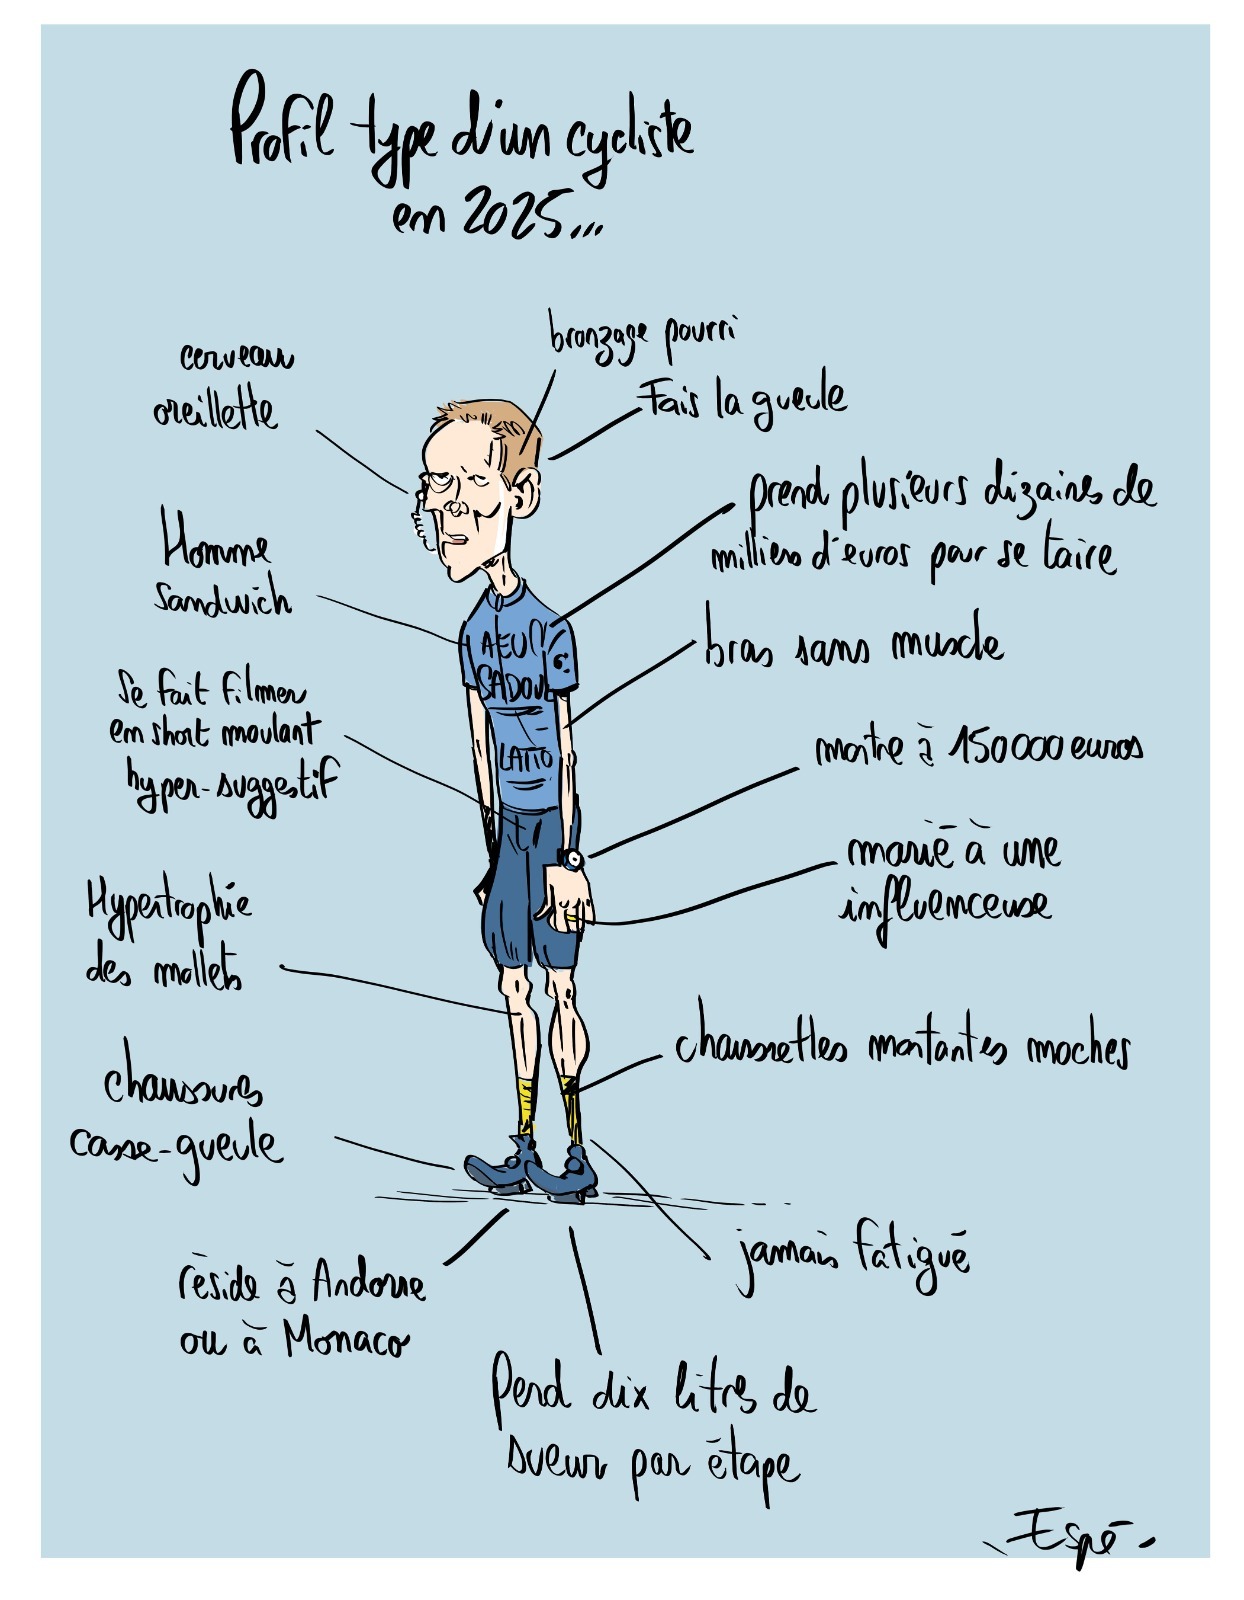 Profil type d'un cycliste
en 2025...
bronzage pourri
cerveau
oreillette
Fais la gueule
prend plusieurs dizaines de
milliers d'euros pour se taire
Homme
sandwich
bras sans muscle
Se fait filmer
en short moulant
hyper-suggestif
montre à 150000 euros
marié à une
influenceuse
Hypertrophie
des mollets
chaussettes montantes moches
chaussures
casse-gueule
jamais fatigué
réside à Andorre
ou à Monaco
Perd dix litres de
sueur par étape
Espé